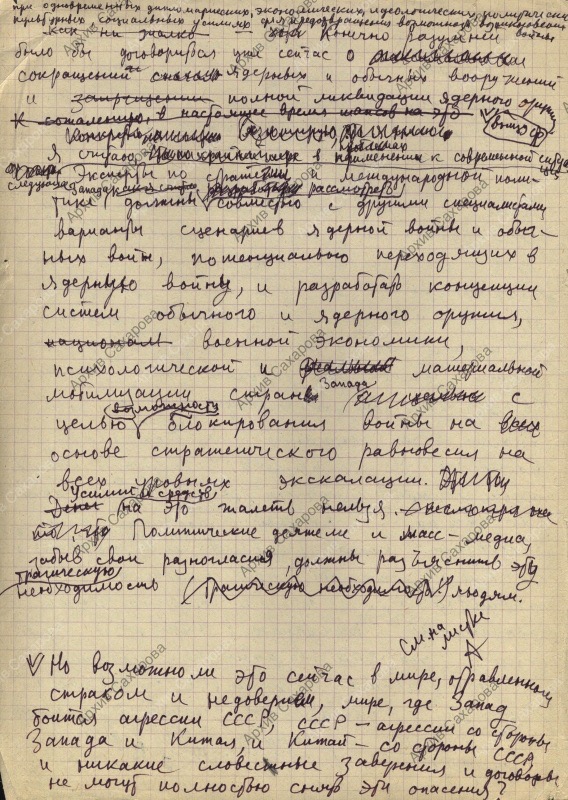 при одновременных дипломатических, экономических, идеологических, политических
культурных, социальных усилиях для предотвращения возможного возникновения войны
как ни жалко — Конечно разумней
было бы договориться уже сейчас о
сокращении ядерных и обычных вооружений
и запрещении полной ликвидации ядерного оружия
К сожалению, в настоящее время шансов на это
Конкретно
я считаю в применении к современной
Эксперты по стратегии и международной поли-
следующее Запада рассмотреть
тике должны совместно с другими специалистами
варианты сценариев ядерной войны и обыч-
ных войн, потенциально переходящих в
ядерную войну, и разработать концепции
систем обычного и ядерного оружия,
военной экономики,
психологической и материальной
мобилизации стран Запада с
возможности
целью блокирования войны на всех
основе стратегического равновесия на
всех уровнях эскалации. При
Усилий и средств
Денег на это жалеть нельзя.
Политические деятели и масс-медиа,
забыв свои разногласия, должны разъяснить эту
трагическую
необходимость (трагическую необходимость) людям.
См. на
листке
А
V Но возможно ли это сейчас в мире, отравленном
страхом и недоверием, мире, где Запад
боится агрессии СССР, СССР — агрессии со стороны
Запада и Китая, и Китай — со стороны СССР,
и никакие словесные заверения и договоры
не могут полностью снять эти опасения?
Архив Сахарова